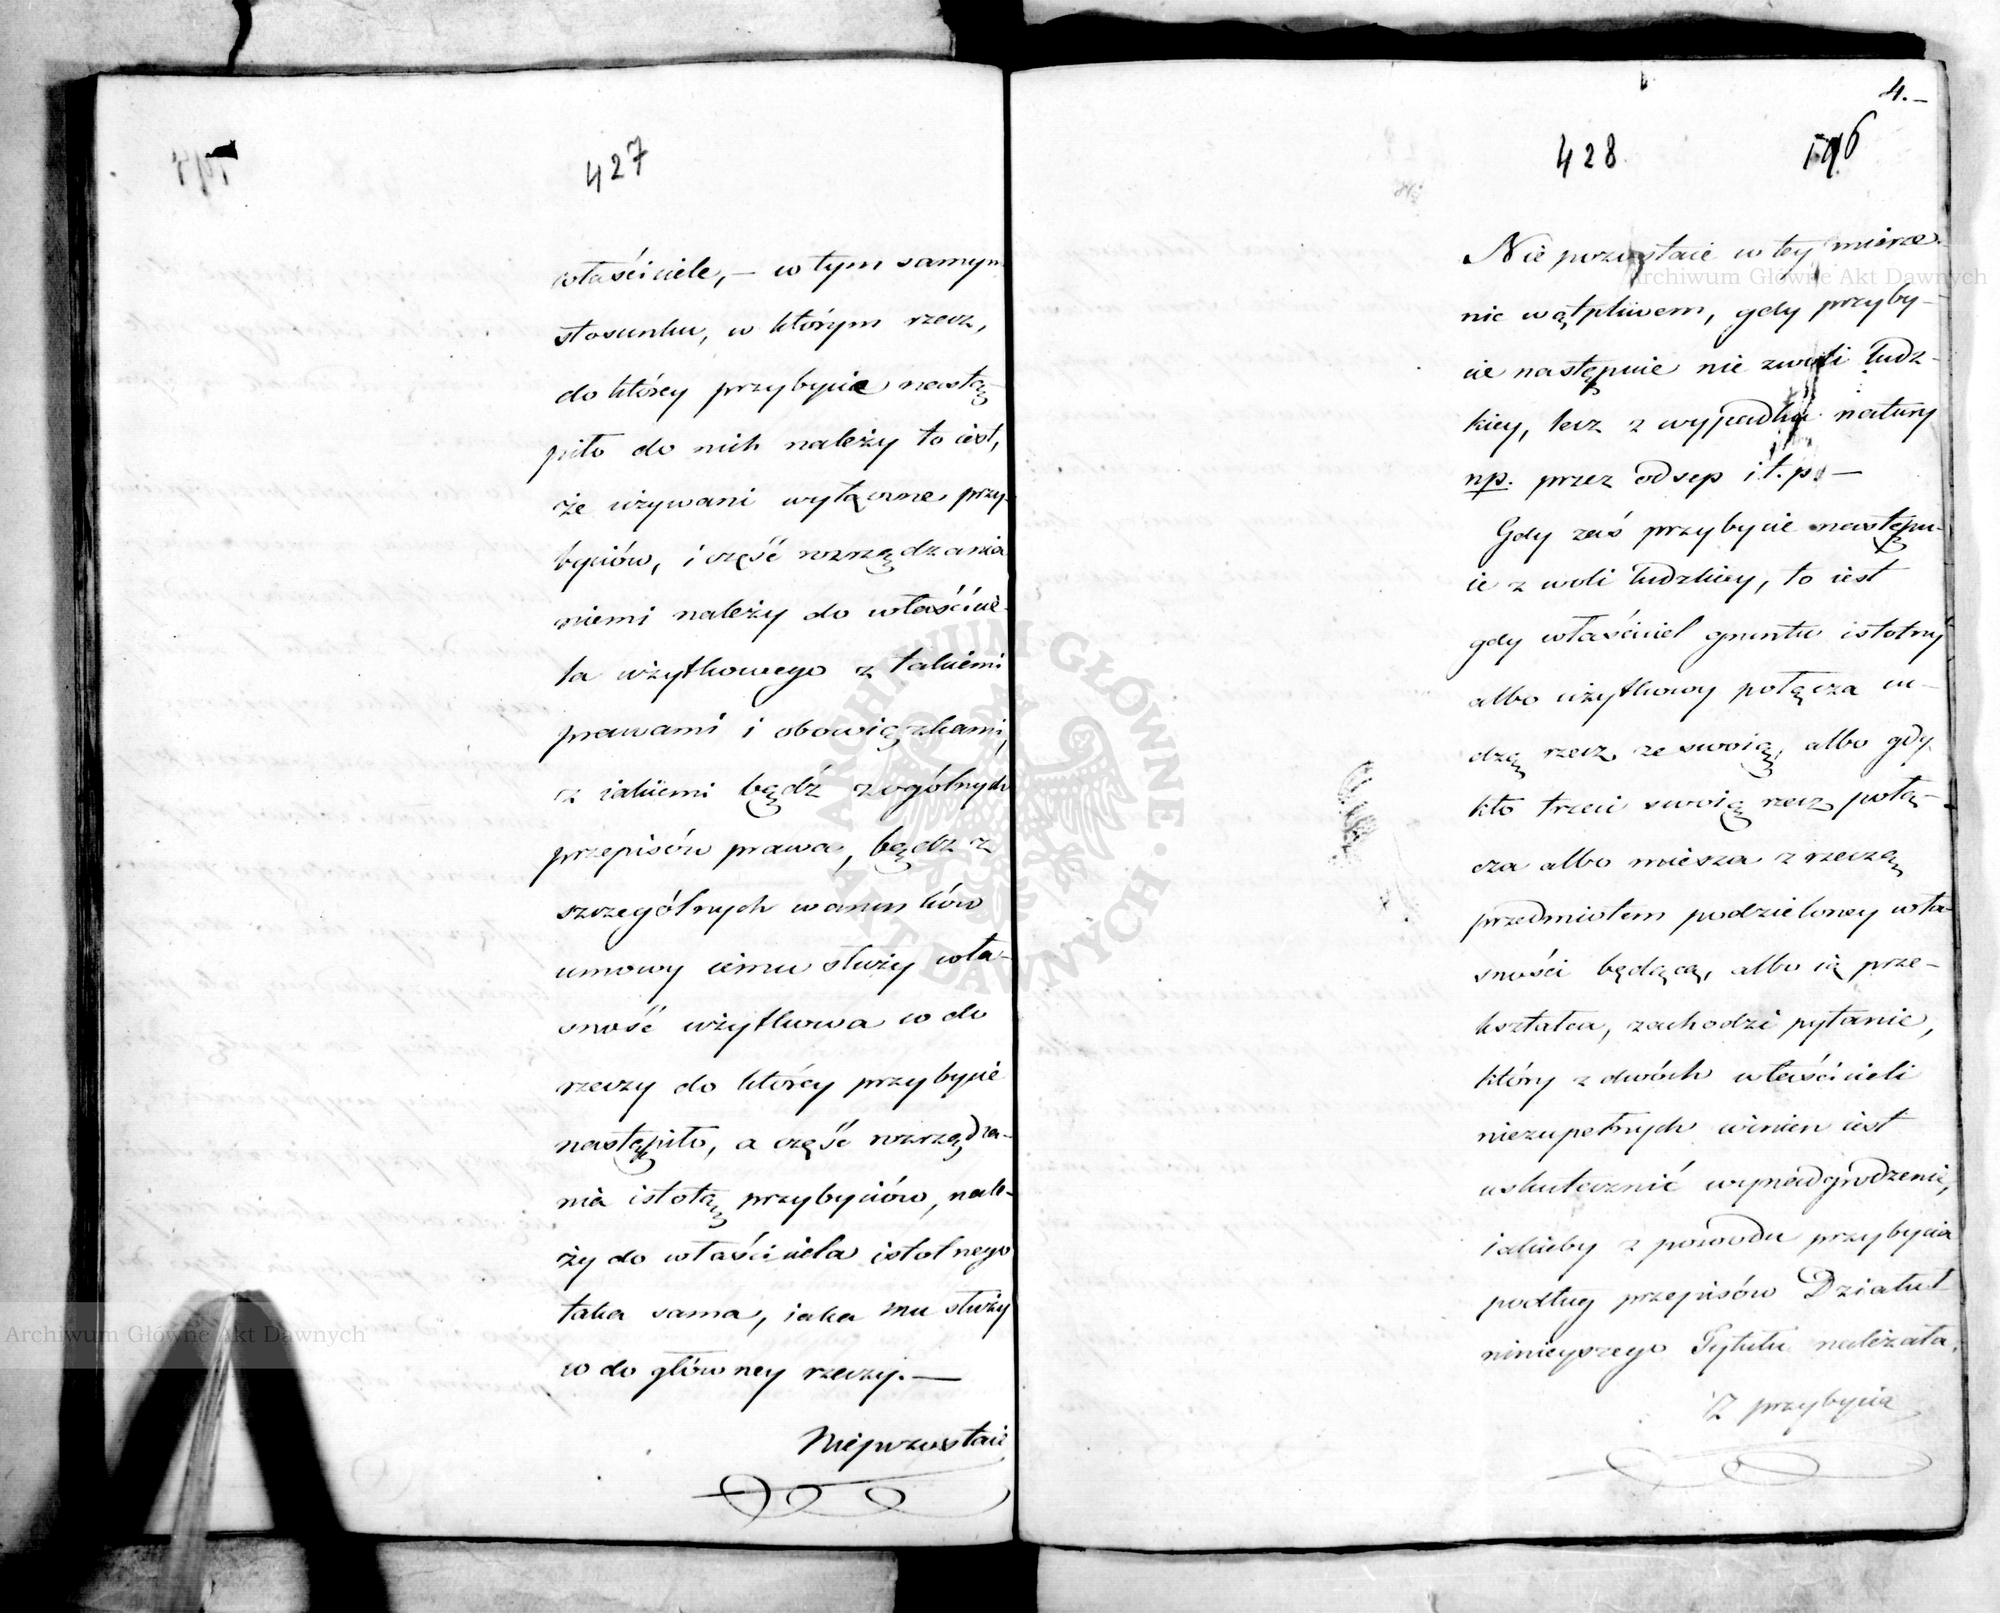 427
właściciele, – w tym samym
stosunku, w którym rzecz,
do którey przybycie nastą-
piło do nich należy to iest,
że używani wyłączne przy-
byciów, i część rozrządzania
niemi należy do właścicie-
la użytkowego z takiemi
prawami i obowiązkami,
z iakiemi bądź z ogólnych
przepisów prawa, bądź z
szczególnych warunków
umowy iemu służy wła-
sność użytkowa w do
rzeczy do którey przybycie
nastąpiło, a część rozrządza-
nia istotą przybyciów, nale-
ży do właściciela istotnego
taka sama, iaka mu służy
w do główney rzeczy. —
Nie pozostaie
4. –
428
196
Nie pozostaie w tey mierze
nic wątpliwem, gdy przyby-
cie następuie nie z woli ludz-
kiey, lecz z wypadku natury
np. przez odsep i t. p. —
Gdy zaś przybycie następu-
ie z woli ludzkiey, to iest
gdy właściciel gruntu istotny
albo użytkowy połącza cu-
dzą rzecz ze swoią, albo gdy
kto trzeci swoią rzecz połą-
cza albo miesza z rzeczą
przedmiotem podzieloney wła-
sności będącą, albo ią prze-
kształca, zachodzi pytanie,
który z dwóch właścicieli
niezupełnych winien iest
uskutecznić wynadgrodzenie,
iakieby z powodu przybycia
podług przepisów Działu I
ninieyszego Tytułu należała.
Z przybycia
Archiwum Główne Akt Dawnych
Archiwum Główne Akt Dawnych
ARCHIWUM GŁÓWNE · AKT DAWNYCH ·